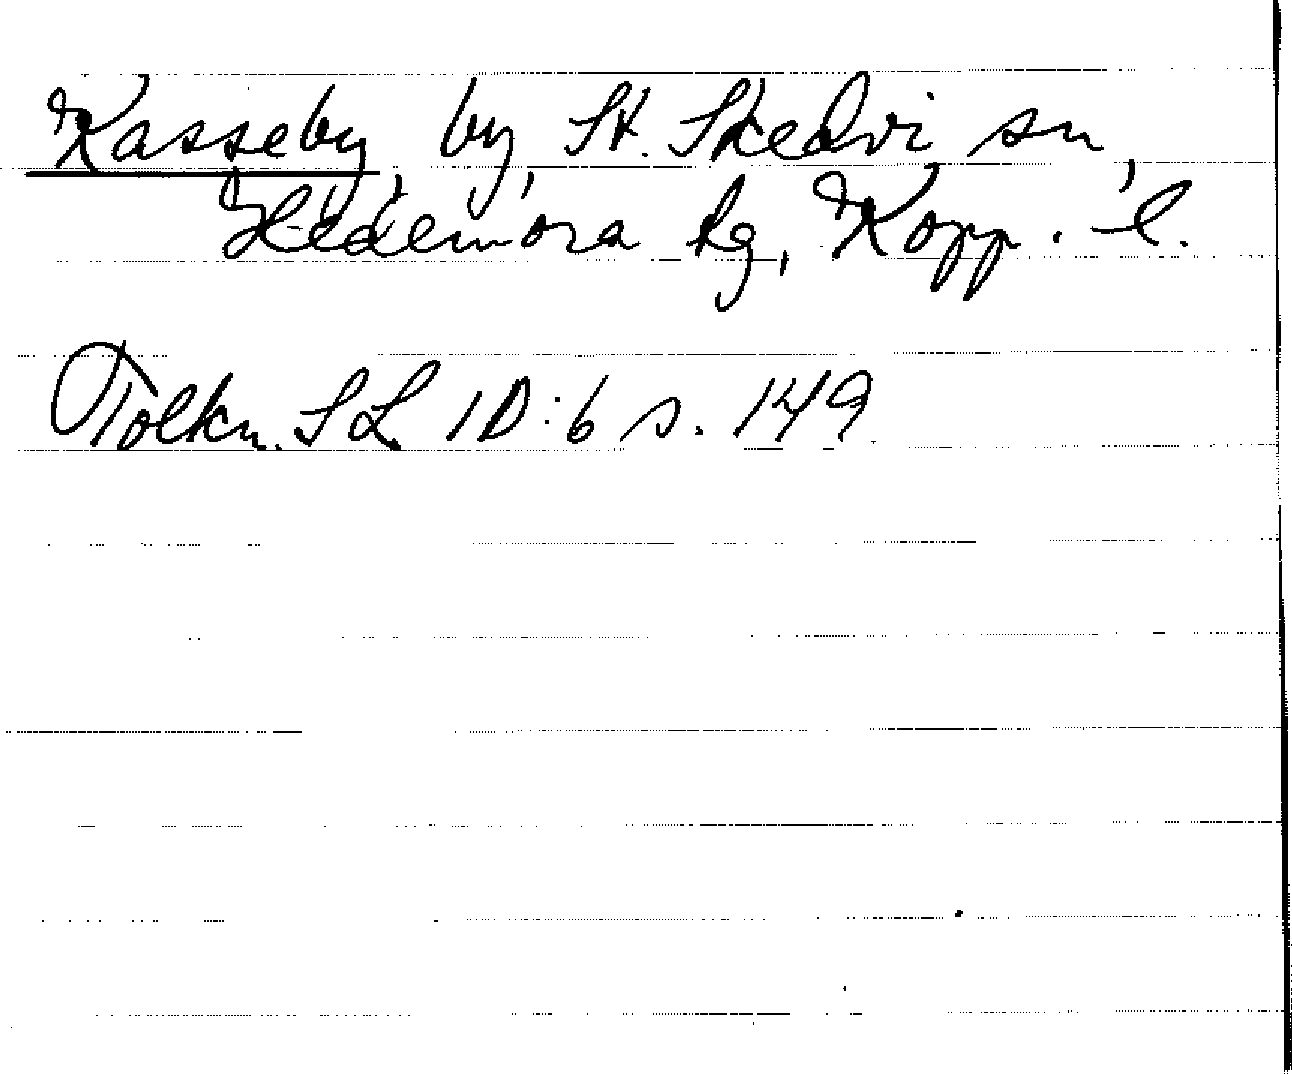 Kasseby, by, St. Skedvi sn,
Hedemora hg, Kopp. l.
Tolkn. SL 1D:6 s. 149